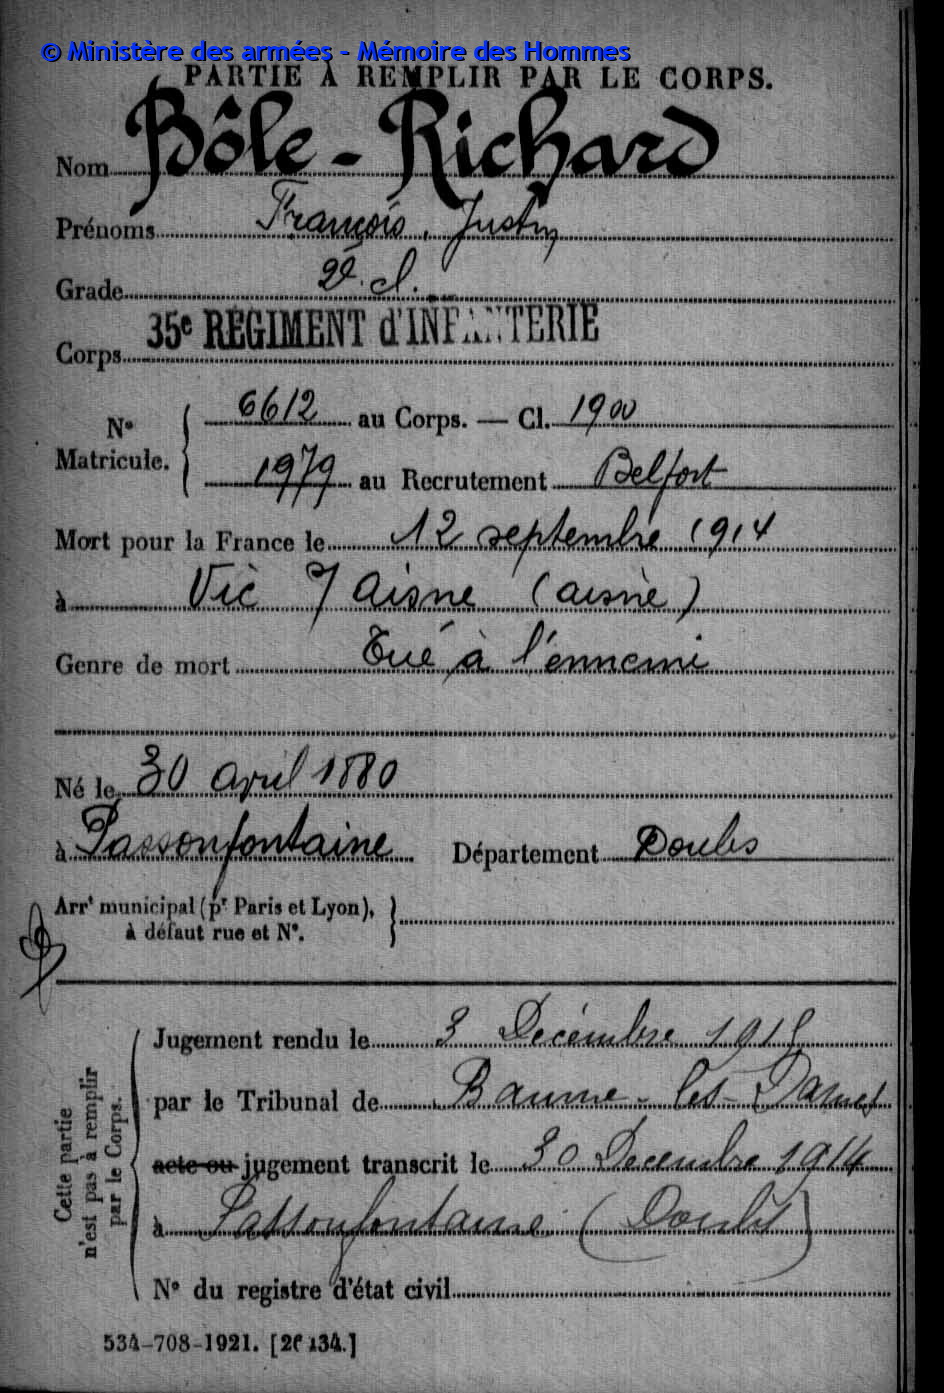 © Ministère des armées - Mémoire des Hommes
PARTIE À REMPLIR PAR LE CORPS.
Nom Bôle-Richard
Prénoms François, Justin
Grade 2e cl.
Corps 35e RÉGIMENT d'INFANTERIE
N° Matricule. 6612 au Corps. — Cl. 1900
1979 au Recrutement Belfort
Mort pour la France le 12 septembre 1914
à Vic s/ aisne (aisne)
Genre de mort Tué à l'ennemi
Né le 30 avril 1880
à Passonfontaine Département Doubs
Arrt municipal (pr Paris et Lyon),
à défaut rue et N°.
Cette partie
n'est pas à remplir
par le Corps.
Jugement rendu le 3 Décembre 1915
par le Tribunal de Baume-les-Dames
acte ou jugement transcrit le 30 Décembre 1914
à Passonfontaine (Doubs)
N° du registre d'état civil
534-708-1921. [26134.]